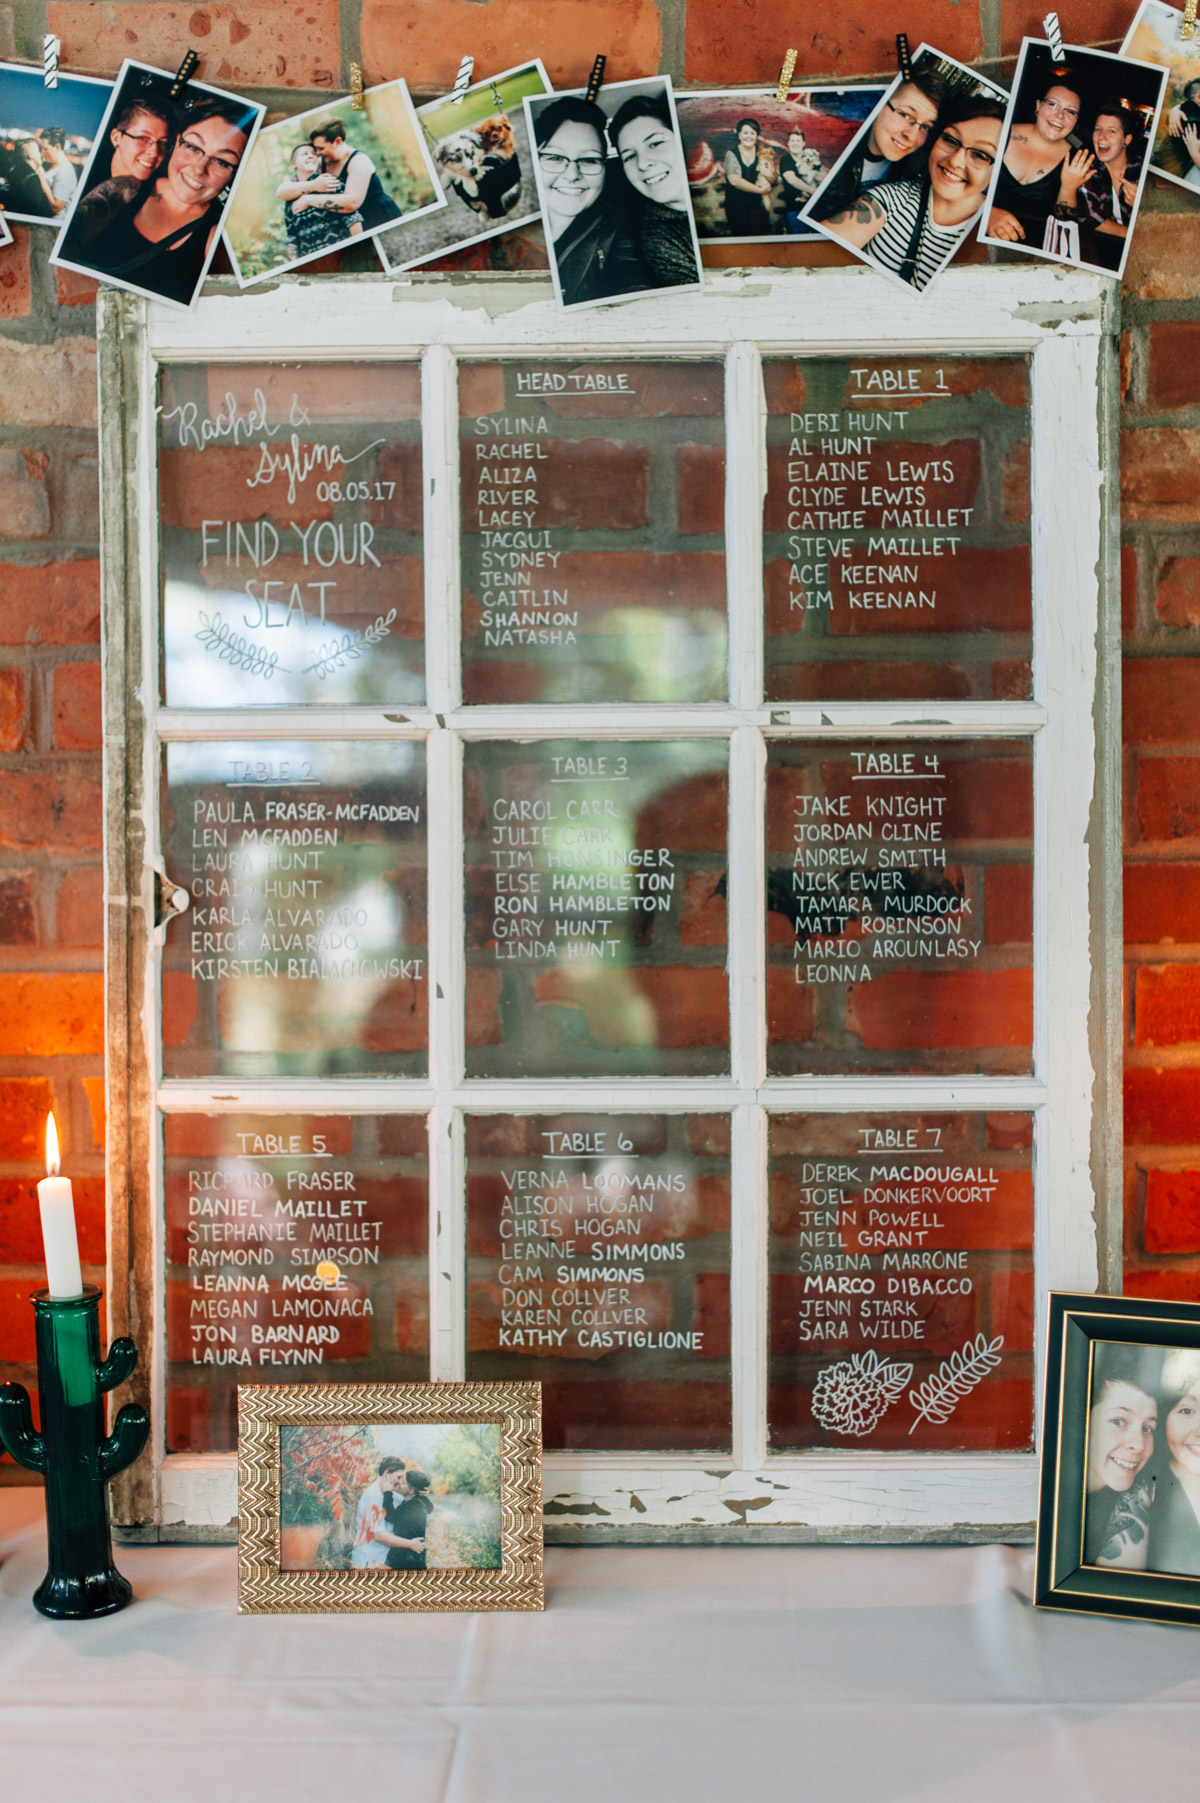 Rachel &
Sylina
08.05.17
FIND YOUR
SEAT
HEAD TABLE
SYLINA
RACHEL
ALIZA
RIVER
LACEY
JACQUI
SYDNEY
JENN
CAITLIN
SHANNON
NATASHA
TABLE 1
DEBI HUNT
AL HUNT
ELAINE LEWIS
CLYDE LEWIS
CATHIE MAILLET
STEVE MAILLET
ACE KEENAN
KIM KEENAN
TABLE 2
PAULA FRASER-MCFADDEN
LEN MCFADDEN
LAURA HUNT
CRAIG HUNT
KARLA ALVARADO
ERICK ALVARADO
KIRSTEN BIALACHOWSKI
TABLE 3
CAROL CARR
JULIE CARR
TIM HONSINGER
ELSE HAMBLETON
RON HAMBLETON
GARY HUNT
LINDA HUNT
TABLE 4
JAKE KNIGHT
JORDAN CLINE
ANDREW SMITH
NICK EWER
TAMARA MURDOCK
MATT ROBINSON
MARIO AROUNLASY
LEONNA
TABLE 5
RICHARD FRASER
DANIEL MAILLET
STEPHANIE MAILLET
RAYMOND SIMPSON
LEANNA MCGEE
MEGAN LAMONACA
JON BARNARD
LAURA FLYNN
TABLE 6
VERNA LOOMANS
ALISON HOGAN
CHRIS HOGAN
LEANNE SIMMONS
CAM SIMMONS
DON COLLVER
KAREN COLLVER
KATHY CASTIGLIONE
TABLE 7
DEREK MACDOUGALL
JOEL DONKERVOORT
JENN POWELL
NEIL GRANT
SABINA MARRONE
MARCO DIBACCO
JENN STARK
SARA WILDE